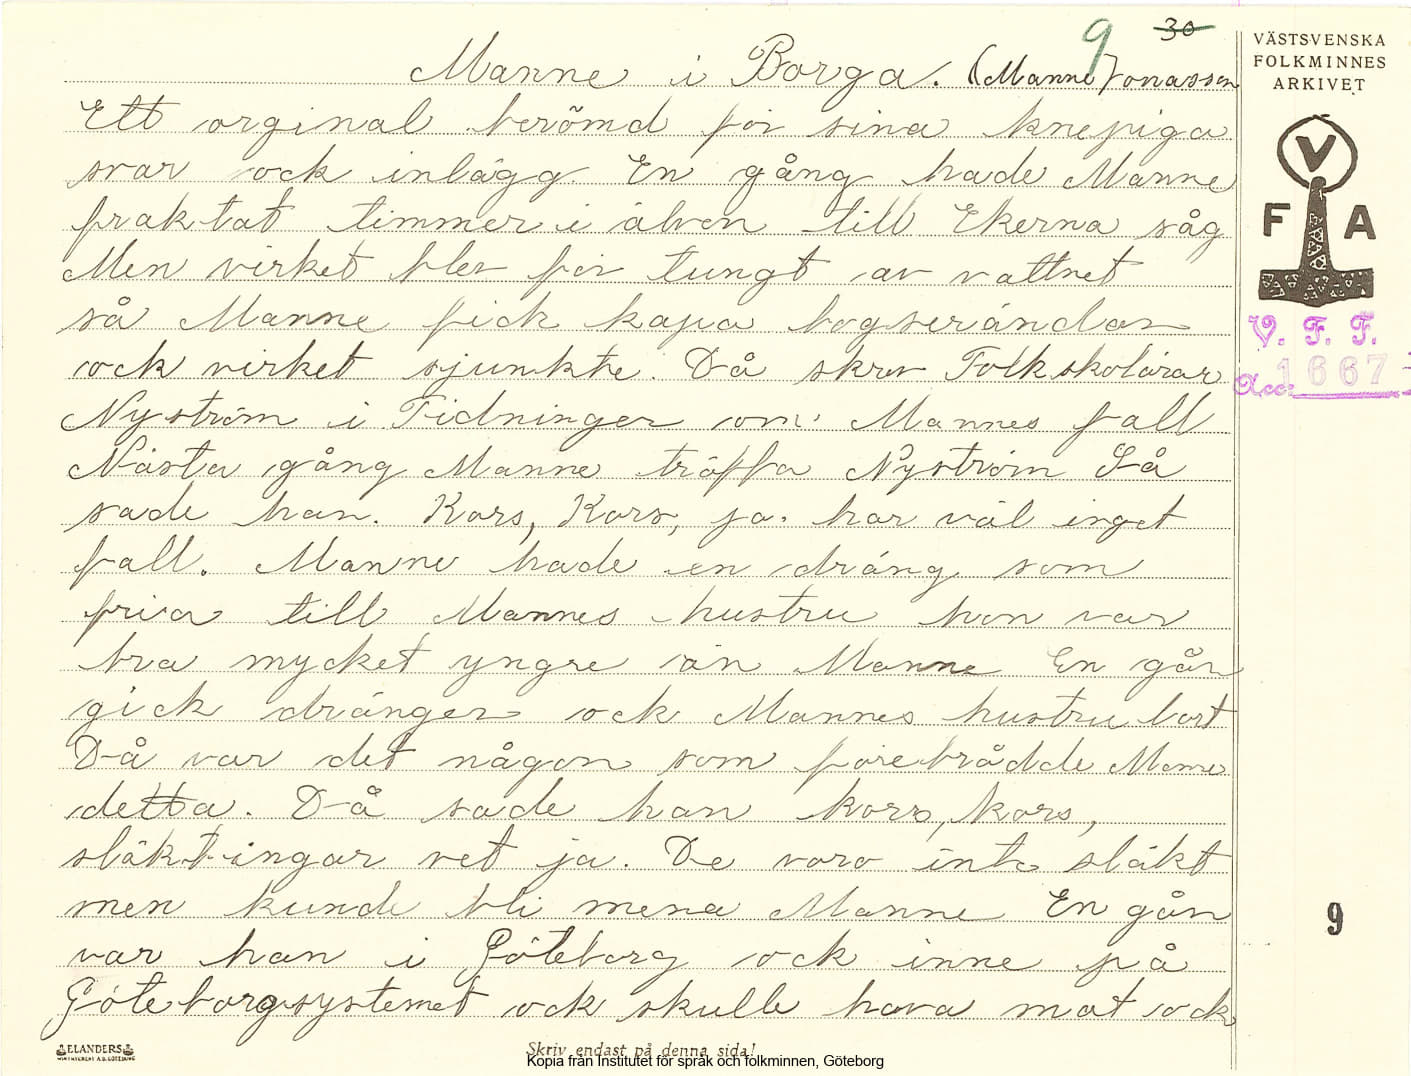 9 30
Manne i Borga. (Manne Jonassen
Ett orginal berömd för sina knepiga
svar ock inlägg. En gång hade Manne
fraktat timmer i älven till Ekerna såg
Men virket blev för tungt av vattnet
så Manne fick kapa bogserändan
ock virket sjunkte. Då skrev Folkskolärar
Nyström i Tidningen om Mannes fall
Nästa gång Manne träffa Nyström Så
sade han. Kors, Kors, ja. har väl inget
fall. Manne hade en dräng som
fria till Mannes hustru hon var
bra mycket yngre än Manne En gån
gick drängen ock Mannes hustru bort
Då var det någon som förebrådde Manne
detta. Då sade han kors, kors,
släktingar vet ja. De voro inte släkt
men kunde bli mena Manne En gån
var han i Göteborg ock inne på
Göteborgsystemet ock skulle hava mat ock
VÄSTSVENSKA
FOLKMINNES
ARKIVET
V
F A
V. F. F.
Acc: 1667
9
ELANDERS
Skriv endast på denna sida!
Kopia från Institutet för språk och folkminnen, Göteborg